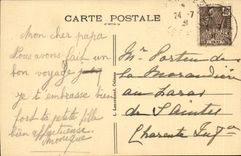 CARTE POSTALE
24-7
Mon cher papa
Nous avons fait un
bon voyage
je t'embrasse bien
fort ta petite fille
bien affectueuse
Monique
Mr Portier de
la Morandière
au Haras
de Saintes
Charente Infre